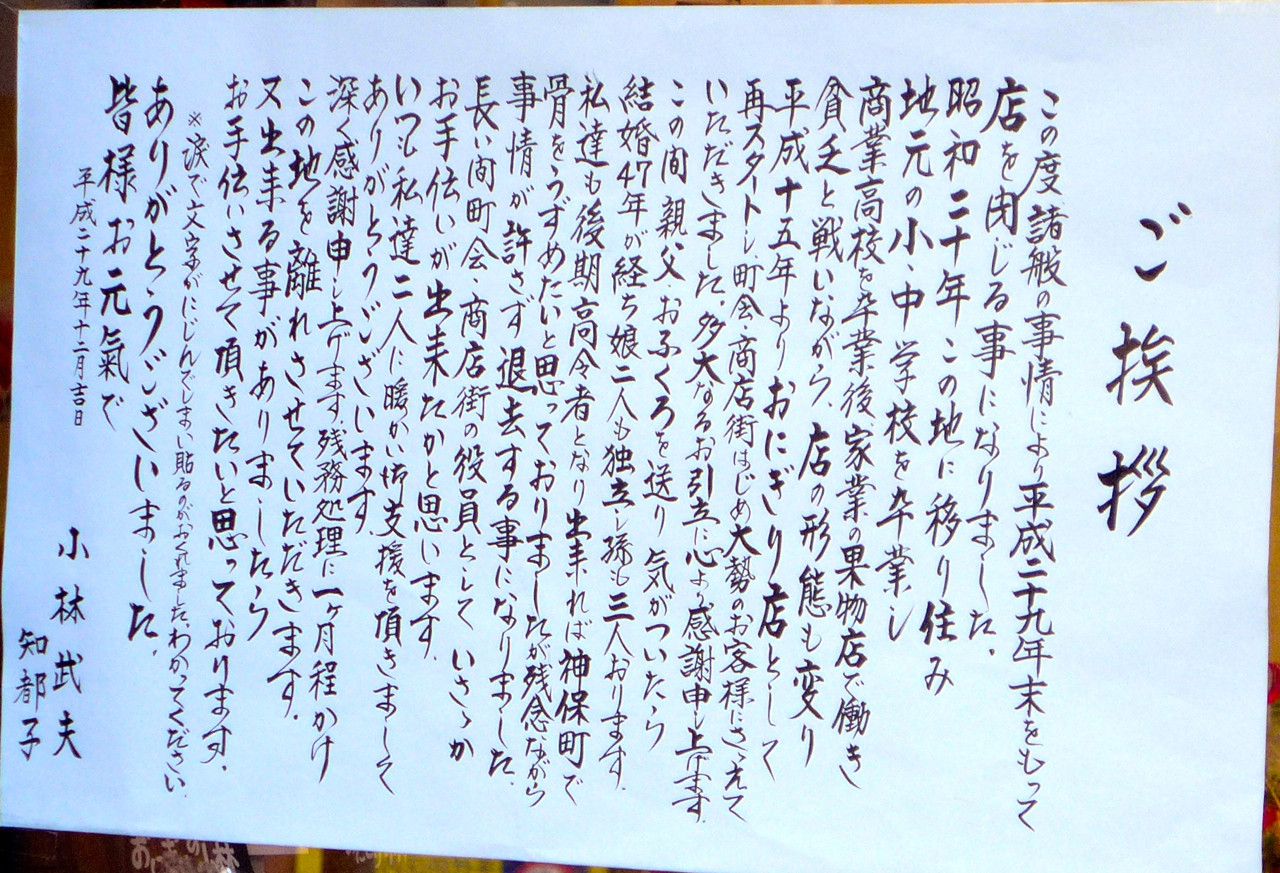 ご挨拶
この度、諸般の事情により平成二十九年末をもって
店を閉じる事になりました。
昭和二十年この地に移り住み
地元の小、中学校を卒業し
商業高校を卒業後、家業の果物店で働き
貧乏と戦いながら、店の形態も変り
平成十五年よりおにぎり店として
再スタートし、町会、商店街はじめ大勢のお客様にささえて
いただきました。多大なるお引立に心より感謝申し上げます。
この間 親父、おふくろを送り 気がついたら
結婚47年が経ち娘二人も独立し孫も三人おります。
私達も後期高令者となり出来れば神保町で
骨をうずめたいと思っておりましたが残念ながら
事情が許さず退去する事になりました。
長い間町会、商店街の役員として いさゝか
お手伝いが出来たかと思います。
いつも私達二人に暖かい御支援を頂きまして
ありがとうございます。
深く感謝申し上げます。残務処理に一ヶ月程かけ
この地を離れさせていただきます。
又出来る事がありましたら
お手伝いさせて頂きたいと思っております。
※涙で文字がにじんでしまい貼るのがおくれました。わかってください。
ありがとうございました。
皆様お元氣で
平成二十九年十二月吉日
小林武夫
知都子